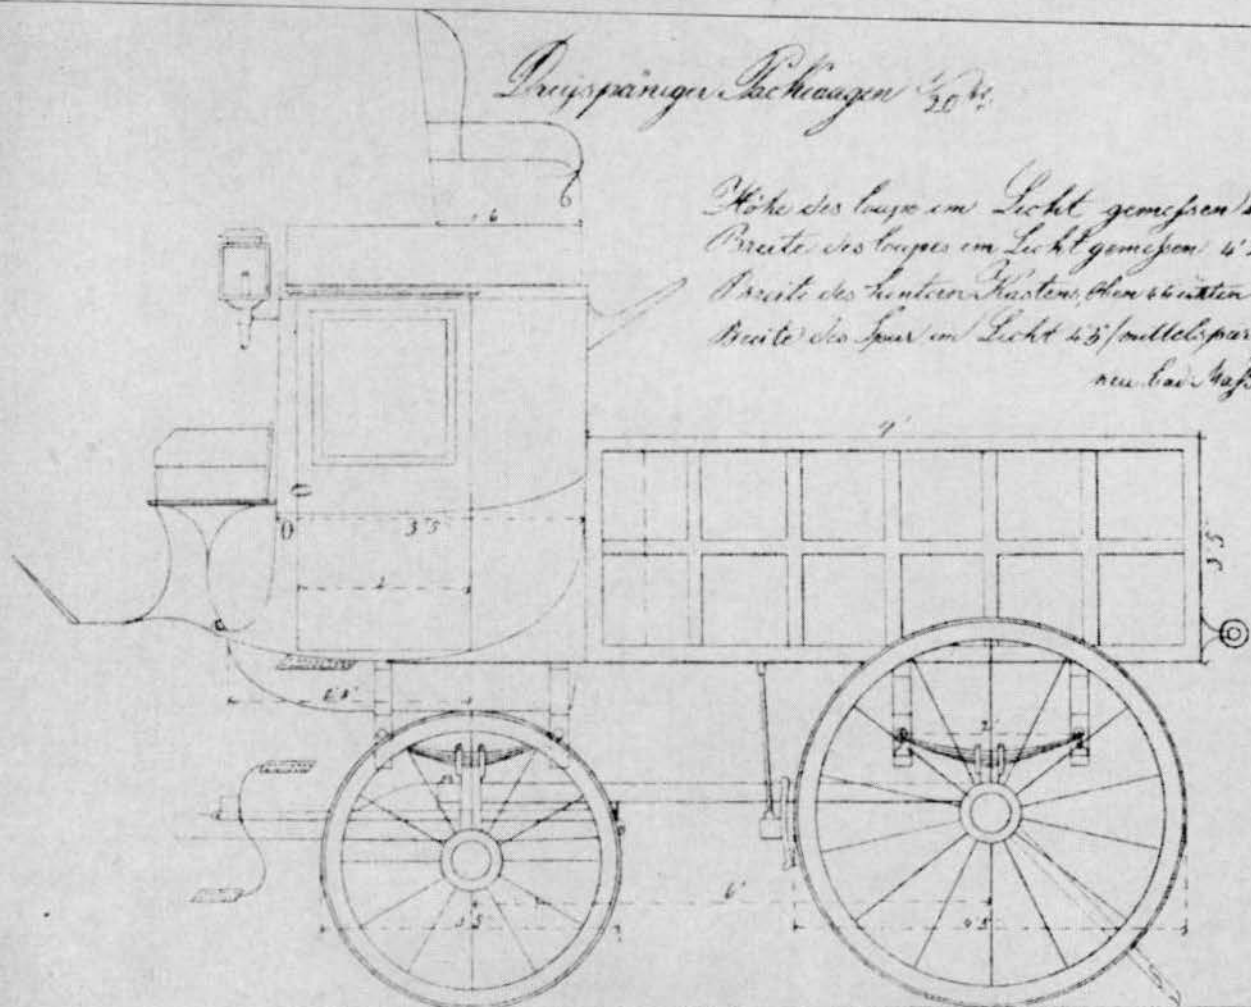 Dreyspäniger Packwagen 1/20
Höhe des Coupe im Licht gemessen
Breite des Coupes im Licht gemessen 4'
Breite des hintern Kastens, oben 4 4 unten
Breite des Spur im Licht 4'5
neu bad. Maß
6
3'5
2
7'
3'5
2'
6'
3'5
4'5